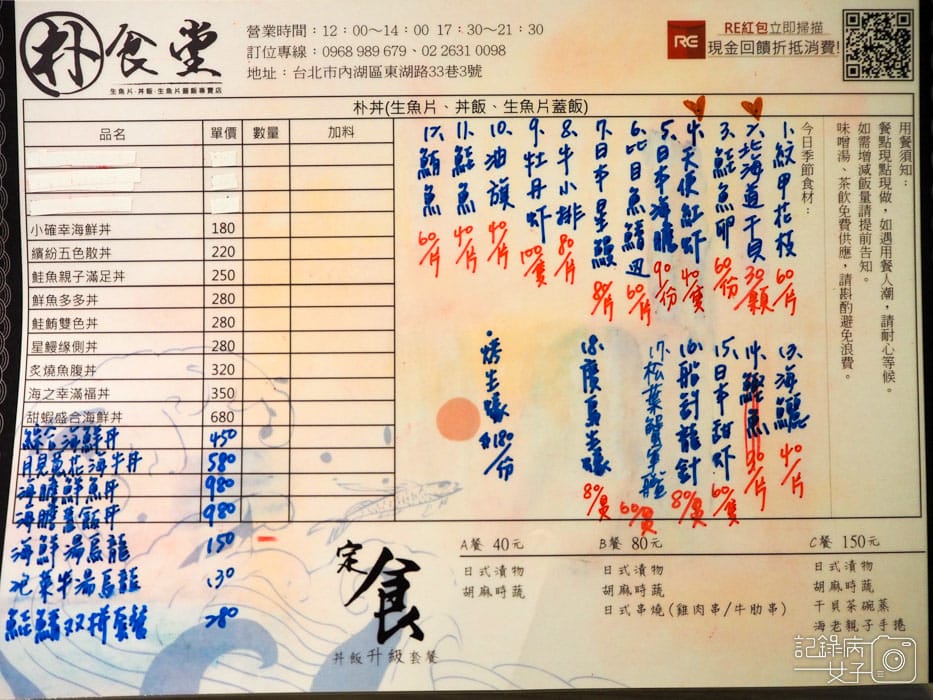 朴食堂
生魚片‧丼飯‧生魚片蓋飯專賣店
營業時間：12：00～14：00 17：30～21：30
訂位專線：0968 989 679、02 2631 0098
地址：台北市內湖區東湖路33巷3號
RE
RE紅包立即掃描
現金回饋折抵消費!
朴丼(生魚片、丼飯、生魚片蓋飯)
品名 單價 數量 加料
小確幸海鮮丼 180
繽紛五色散丼 220
鮭魚親子滿足丼 250
鮮魚多多丼 280
鮭鮪雙色丼 280
星鰻緣側丼 280
炙燒魚腹丼 320
海之幸滿福丼 350
甜蝦盛合海鮮丼 680
綜合海鮮丼 450
月見蔥花海牛丼 580
海膽鮮魚丼 980
海膽蓋飯丼 980
海鮮湯烏龍 150
泡菜牛湯烏龍 130
鮭鯖双拼套餐 280
用餐須知：
餐點現點現做，如遇用餐人潮，請耐心等候。
如需增減飯量請提前告知。
味噌湯、茶飲免費供應，請斟酌避免浪費。
今日季節食材：
1.紋甲花枝 60/片
2.北海道干貝 30/顆
3.鮭魚卵 60/份
4.天使紅虾 40/隻
5.日本海膽 90/份
6.比目魚鰭邊 60/片
7.日本星鰻 80/片
8.牛小排 80/片
9.牡丹虾 100/隻
10.油旗 40/片
11.鮭魚 40/片
12.鮪魚 60/片
13.海鱺 40/片
14.魚 30/片
15.日本甜虾 60/隻
16.船釣龍針 80/貫
17.松葉蟹軍艦 60/貫
18.廣島生蠔 80/貫
烤生蠔 $180/份
定食
丼飯升級套餐
A餐 40元
日式漬物
胡麻時蔬
B餐 80元
日式漬物
胡麻時蔬
日式串燒(雞肉串/牛肋串)
C餐 150元
日式漬物
胡麻時蔬
干貝茶碗蒸
海老親子手捲
記錄病女子